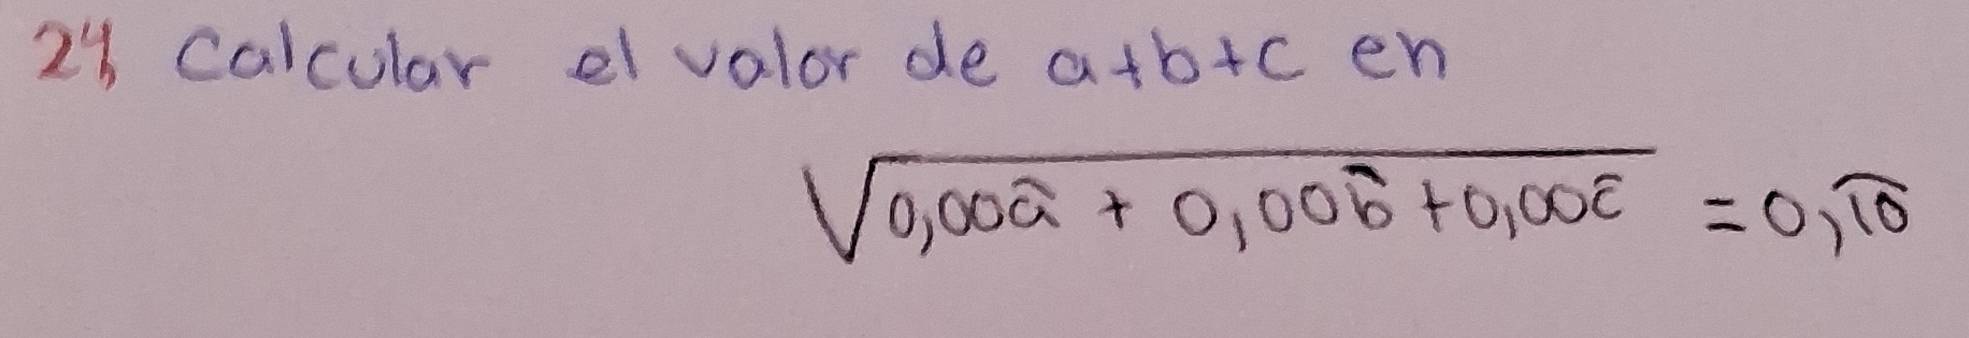 24) Calcular el valor de a+b+c en
√0,00a̅ + 0,00b̅ + 0,00c̅ = 0,1̅0̅